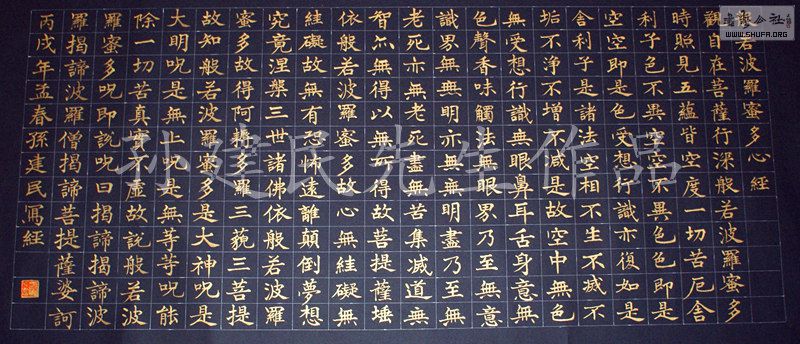 若波羅蜜多心經
觀自在菩薩行深般若波羅蜜多
時照見五蘊皆空度一切苦厄舍
利子色不異空空不異色色即是
空空即是色受想行識亦復如是
舍利子是諸法空相不生不滅不
垢不净不增不減是故空中無色
無受想行識無眼鼻耳舌身意無
色聲香味觸法無眼界乃至無意
識界無無明亦無無明盡乃至無
老死亦無老死盡無苦集滅道無
智亦無得以無所得故菩提薩埵
依般若波羅蜜多故心無絓礙無
絓礙故無有恐怖遠離顛倒夢想
究竟涅槃三世諸佛依般若波羅
蜜多故得阿耨多羅三藐三菩提
故知般若波羅蜜多是大神呪是
大明呪是無上呪是無等等呪能
除一切苦真實不虛故說般若波
羅蜜多呪即說呪曰揭諦揭諦波
羅揭諦波羅僧揭諦菩提薩婆訶
丙戌年孟春孫建民寫經
孙建民先生作品
書藝公社
WWW.SHUFA.ORG